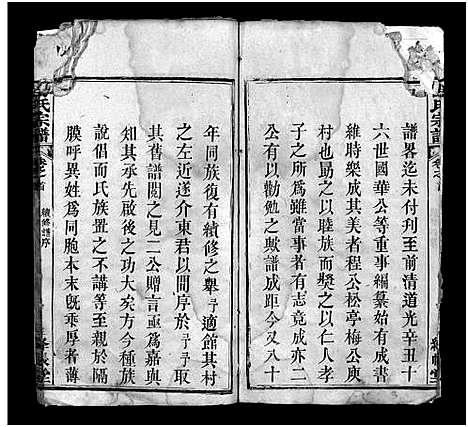 氏宗譜
卷之首
譜畧迄未付刋至前清道光辛丑十
六世國華公等重事編纂始有成書
維時樂成其美者程公松亭梅公庾
村也勗之以睦族而奬之以仁人孝
子之所為雖當事者有志竟成亦二
公有以勸勉之歟譜成距今又八十
年同族復有續修之舉予適館其村
之左近遂介東君以間序於予予取
其舊譜閲之見二公贈言亟為嘉與
其承先啟後之功大矣方今種族
說倡而氏族置之不講等至親於隔
膜呼異姓為同胞本末旣乖厚者薄
氏宗譜
卷之首
續修譜序